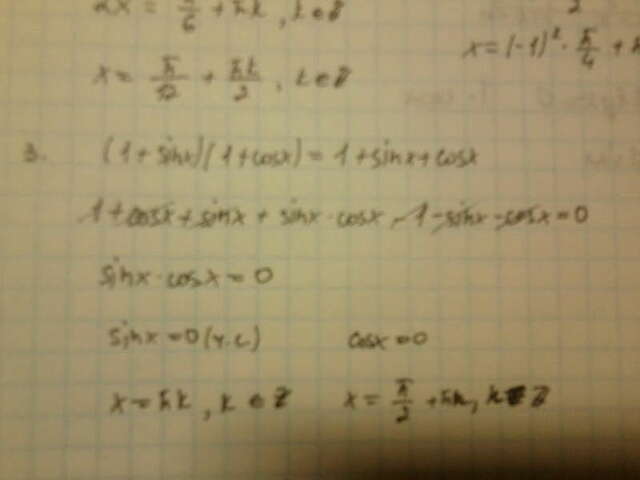 2x = π/6 + πk, k ∈ Z
x = π/12 + πk/2, k ∈ Z
x = (-1)^k · π/4 +
3. (1 + sinx)(1 + cosx) = 1 + sinx + cosx
1 + cosx + sinx + sinx · cosx - 1 - sinx - cosx = 0
sinx · cosx = 0
sinx = 0 (ч.с.) cosx = 0
x = πk, k ∈ Z x = π/2 + πk, k ∈ Z